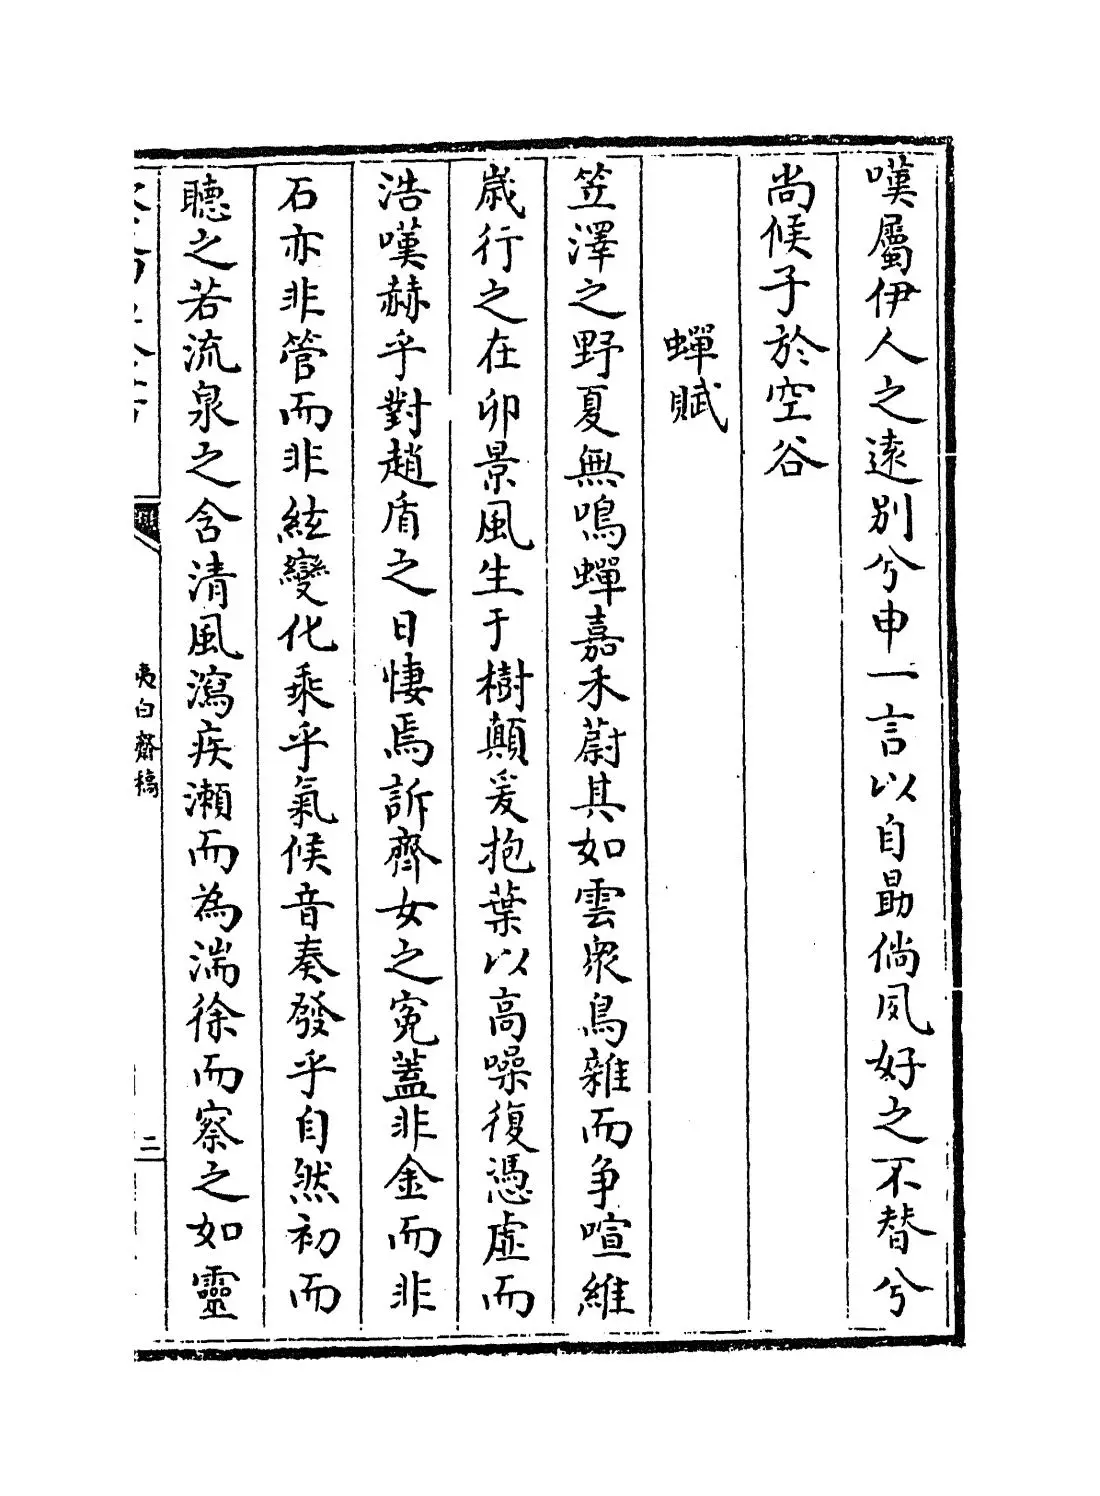 嘆屬伊人之遠別兮申一言以自勗倘夙好之不替兮
尚候子於空谷
蟬賦
笠澤之野夏無鳴蟬嘉禾蔚其如雲眾鳥雜而爭喧維
歲行之在卯景風生于樹顛爰抱葉以高噪復憑虛而
浩嘆赫乎對趙盾之日悽焉訴齊女之寃蓋非金而非
石亦非管而非絃變化乘乎氣候音奏發乎自然初而
聽之若流泉之含清風瀉疾瀨而為湍徐而察之如靈
夷白齋稿
二